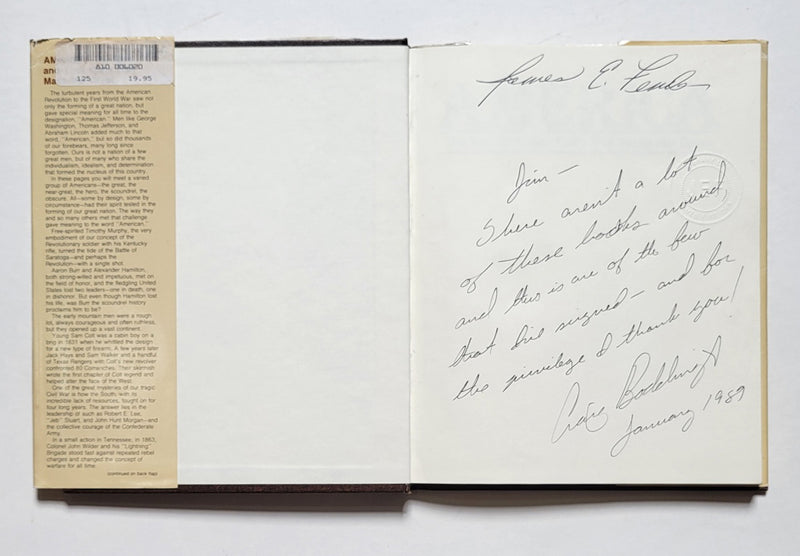 A10 00L020
125 19.95
AM
and
Ma
The turbulent years from the American
Revolution to the First World War saw not
only the forming of a great nation, but
gave special meaning for all time to the
designation, "American." Men like George
Washington, Thomas Jefferson, and
Abraham Lincoln added much to that
word, "American," but so did thousands
of our forebears, many long since
forgotten. Ours is not a nation of a few
great men, but of many who share the
individualism, idealism, and determination
that formed the nucleus of this country.
In these pages you will meet a varied
group of Americans—the great, the
near-great, the hero, the scoundrel, the
obscure. All—some by design, some by
circumstance—had their spirit tested in the
forming of our great nation. The way they
and so many others met that challenge
gave meaning to the word "American."
Free-spirited Timothy Murphy, the very
embodiment of our concept of the
Revolutionary soldier with his Kentucky
rifle, turned the tide of the Battle of
Saratoga—and perhaps the
Revolution—with a single shot.
Aaron Burr and Alexander Hamilton,
both strong-willed and impetuous, met on
the field of honor, and the fledgling United
States lost two leaders—one in death, one
in dishonor. But even though Hamilton lost
his life, was Burr the scoundrel history
proclaims him to be?
The early mountain men were a rough
lot, always courageous and often ruthless,
but they opened up a vast continent.
Young Sam Colt was a cabin boy on a
brig in 1831 when he whittled the design
for a new type of firearm. A few years later
Jack Hays and Sam Walker and a handful
of Texas Rangers with Colt's new revolver
confronted 80 Comanches. Their skirmish
wrote the first chapter of Colt legend and
helped alter the face of the West.
One of the great mysteries of our tragic
Civil War is how the South, with its
incredible lack of resources, fought on for
four long years. The answer lies in the
leadership of such as Robert E. Lee,
"Jeb" Stuart, and John Hunt Morgan—and
the collective courage of the Confederate
Army.
In a small action in Tennessee, in 1863,
Colonel John Wilder and his "Lightning"
Brigade stood fast against repeated rebel
charges and changed the concept of
warfare for all time.
(continued on back flap)
James E.
Jim—
There aren't a lot
of these books around
and this is one of the few
that I've signed— and for
the privilege I thank you!
Craig Boddington
January 1989